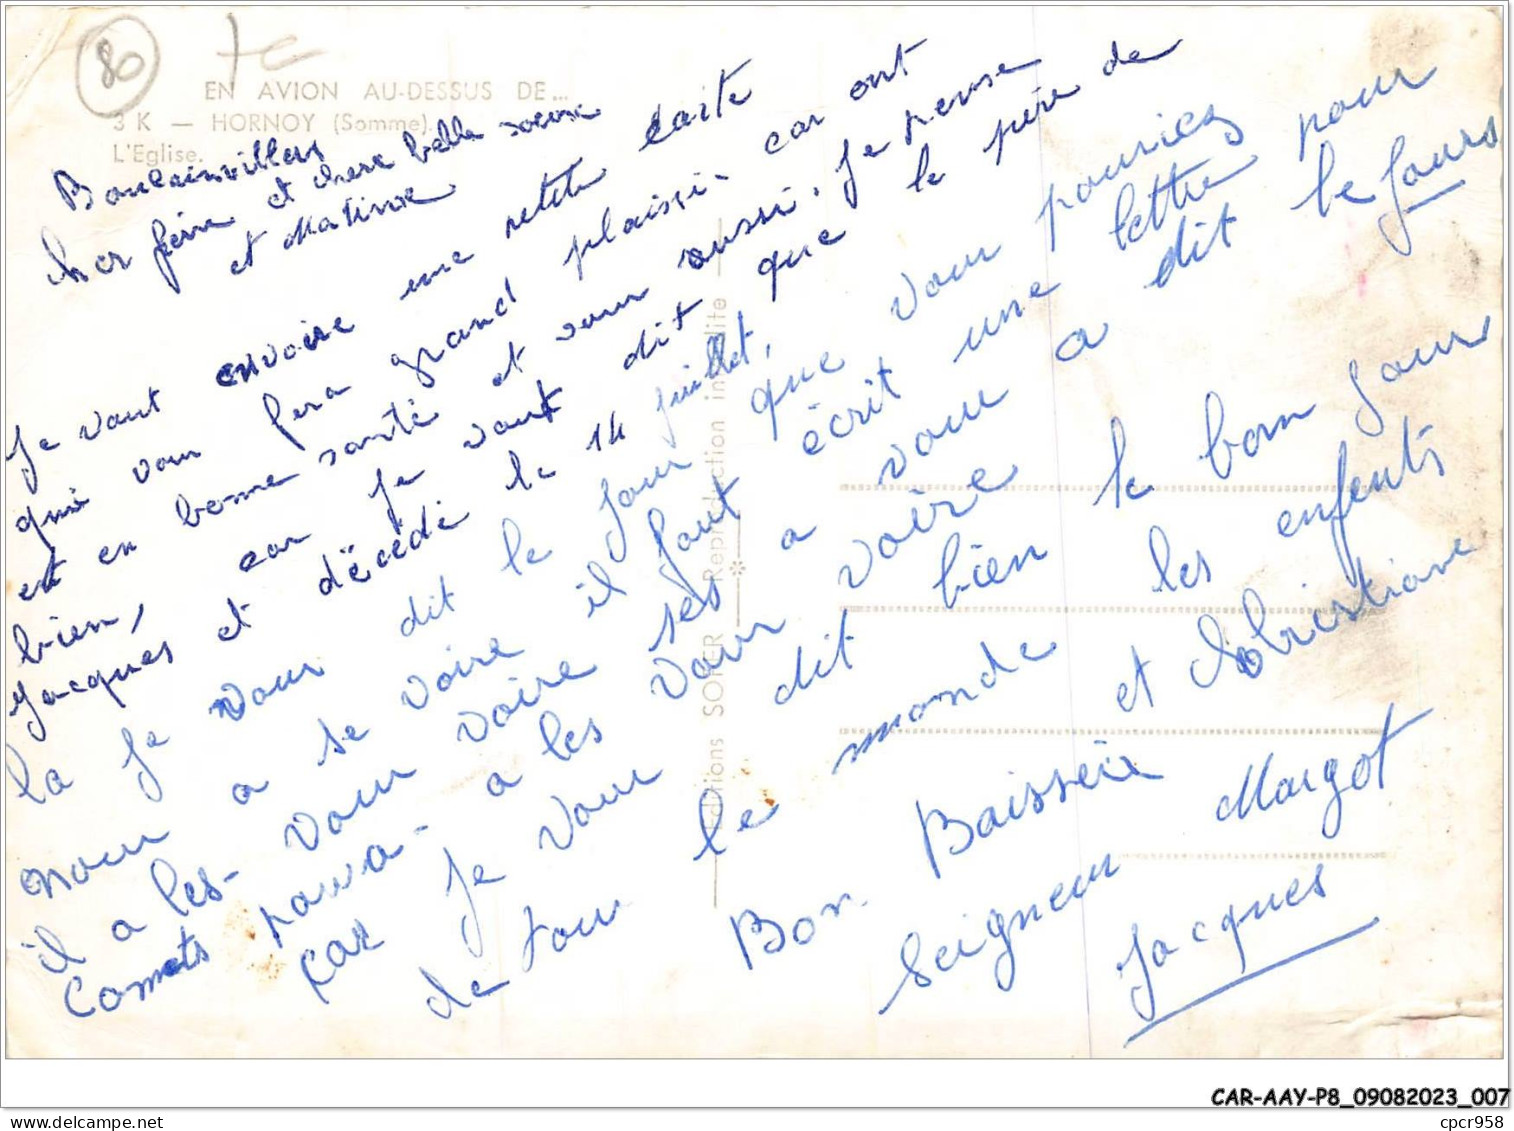 80
EN AVION AU-DESSUS DE...
3 K — HORNOY (Somme).
L'Eglise.
Boulainvillers
cher frère et chere belle soeure
et Martine
Je vout envoire une petite carte
qui vour fera grand plaisir car ont
est en bonne santé et vour aussi. Je pense
bien, car je vout dit que le père de
Jacques et décédé le 14 juillet,
la je vour dit le jour que vour pouriez
nour a se voire il faut écrit une lettre pour
il a les- vour voire ses a vour a dit le jours
Comets pourra- a les vour voire
car je vour dit bien le bon jour
de tour le monde les enfents
Bon Baissère et Christiane
Seigneur Margot
Jacques
Editions SOFER Reproduction interdite
CAR-AAY-P8_09082023_007
www.delcampe.net
cpcr958